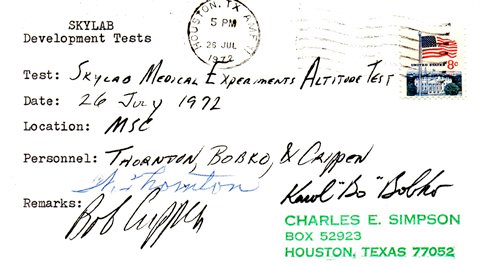 SKYLAB
Development Tests
HOUSTON, TX
5 PM
26 JUL
1972
UNITED STATES 8c
Test: SKYLAB MEDICAL EXPERIMENTS ALTITUDE TEST
Date: 26 July 1972
Location: MSC
Personnel: THORNTON, BOBKO, & CRIPPEN
W. Thornton
Karol "Bo" Bobko
Remarks:
Bob Crippen
CHARLES E. SIMPSON
BOX 52923
HOUSTON, TEXAS 77052